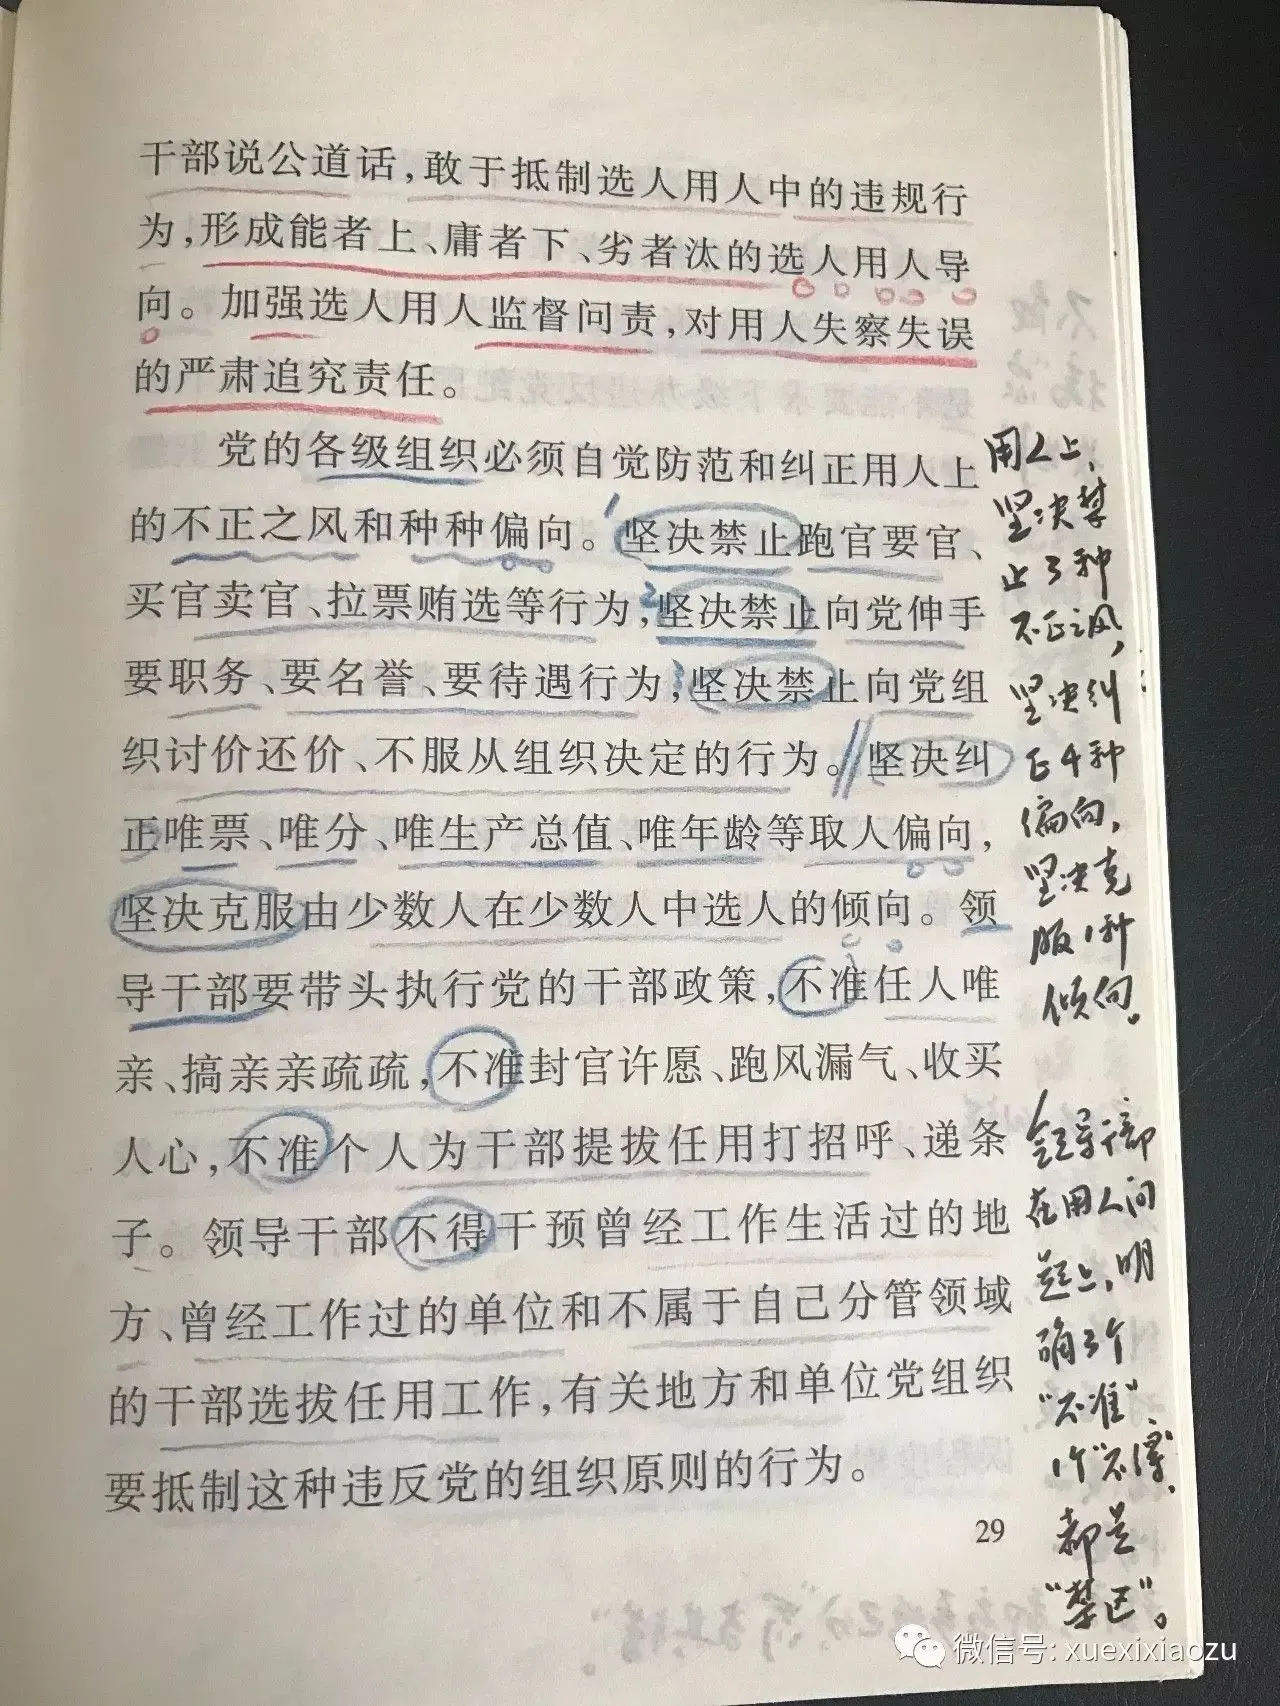 干部说公道话,敢于抵制选人用人中的违规行
为,形成能者上、庸者下、劣者汰的选人用人导
向。加强选人用人监督问责,对用人失察失误
的严肃追究责任。
党的各级组织必须自觉防范和纠正用人上
的不正之风和种种偏向。坚决禁止跑官要官、
买官卖官、拉票贿选等行为,坚决禁止向党伸手
要职务、要名誉、要待遇行为,坚决禁止向党组
织讨价还价、不服从组织决定的行为。坚决纠
正唯票、唯分、唯生产总值、唯年龄等取人偏向,
坚决克服由少数人在少数人中选人的倾向。领
导干部要带头执行党的干部政策,不准任人唯
亲、搞亲亲疏疏,不准封官许愿、跑风漏气、收买
人心,不准个人为干部提拔任用打招呼、递条
子。领导干部不得干预曾经工作生活过的地
方、曾经工作过的单位和不属于自己分管领域
的干部选拔任用工作,有关地方和单位党组织
要抵制这种违反党的组织原则的行为。
29
1
2
3
用人上,
坚决禁
止3种
不正之风,
坚决纠
正4种
偏向,
坚决克
服1种
倾向。
领导干部
在用人问
题上,明
确3个
“不准”
1个“不得”,
都是
“禁区”。
微信号: xuexixiaozu